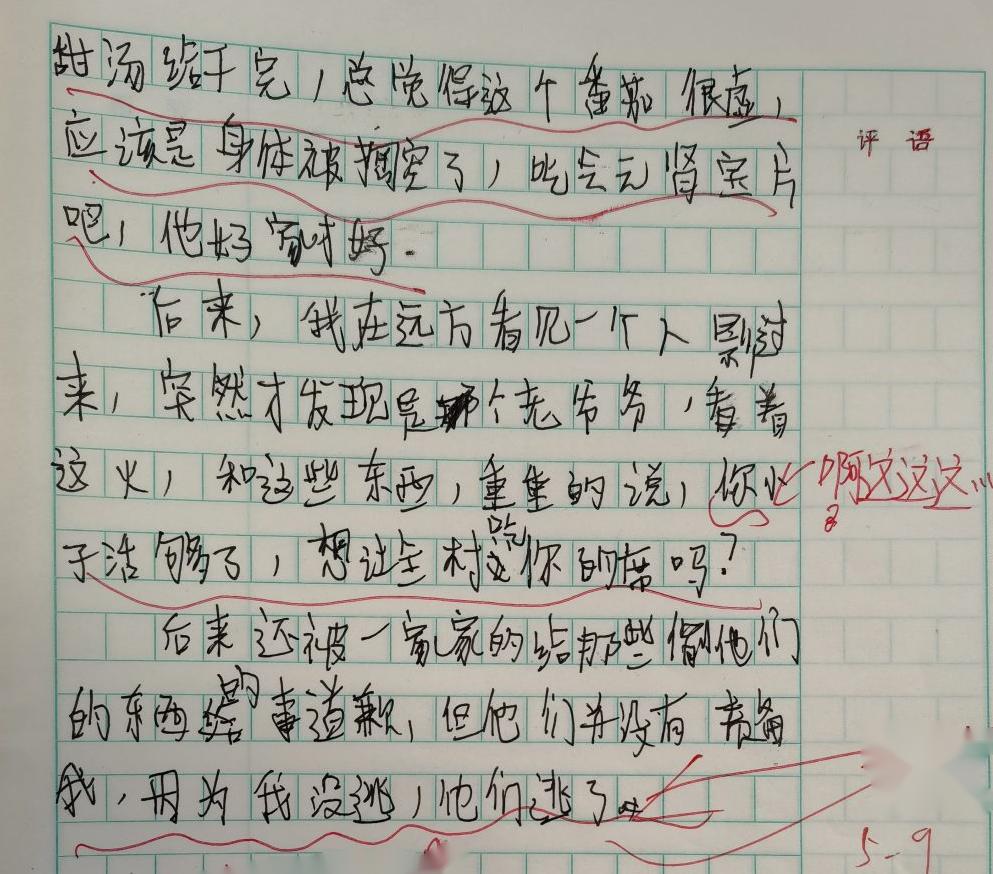 甜汤给干完，总觉得这个番茄很虚，
评语
应该是身体被掏空了，吃会元肾宝片
吧，他好家才好.
后来，我在远方看见一个人影过
来，突然才发现是个老爷爷，看着
这火，和这些东西，重重的说，你小
啊这这这…
子活够了，想让全村吃你的席吗?
后来还被一家家的给那些偷他们
的东西的事道歉，但他们并没有责备
我，因为我没逃，他们逃了
5-9